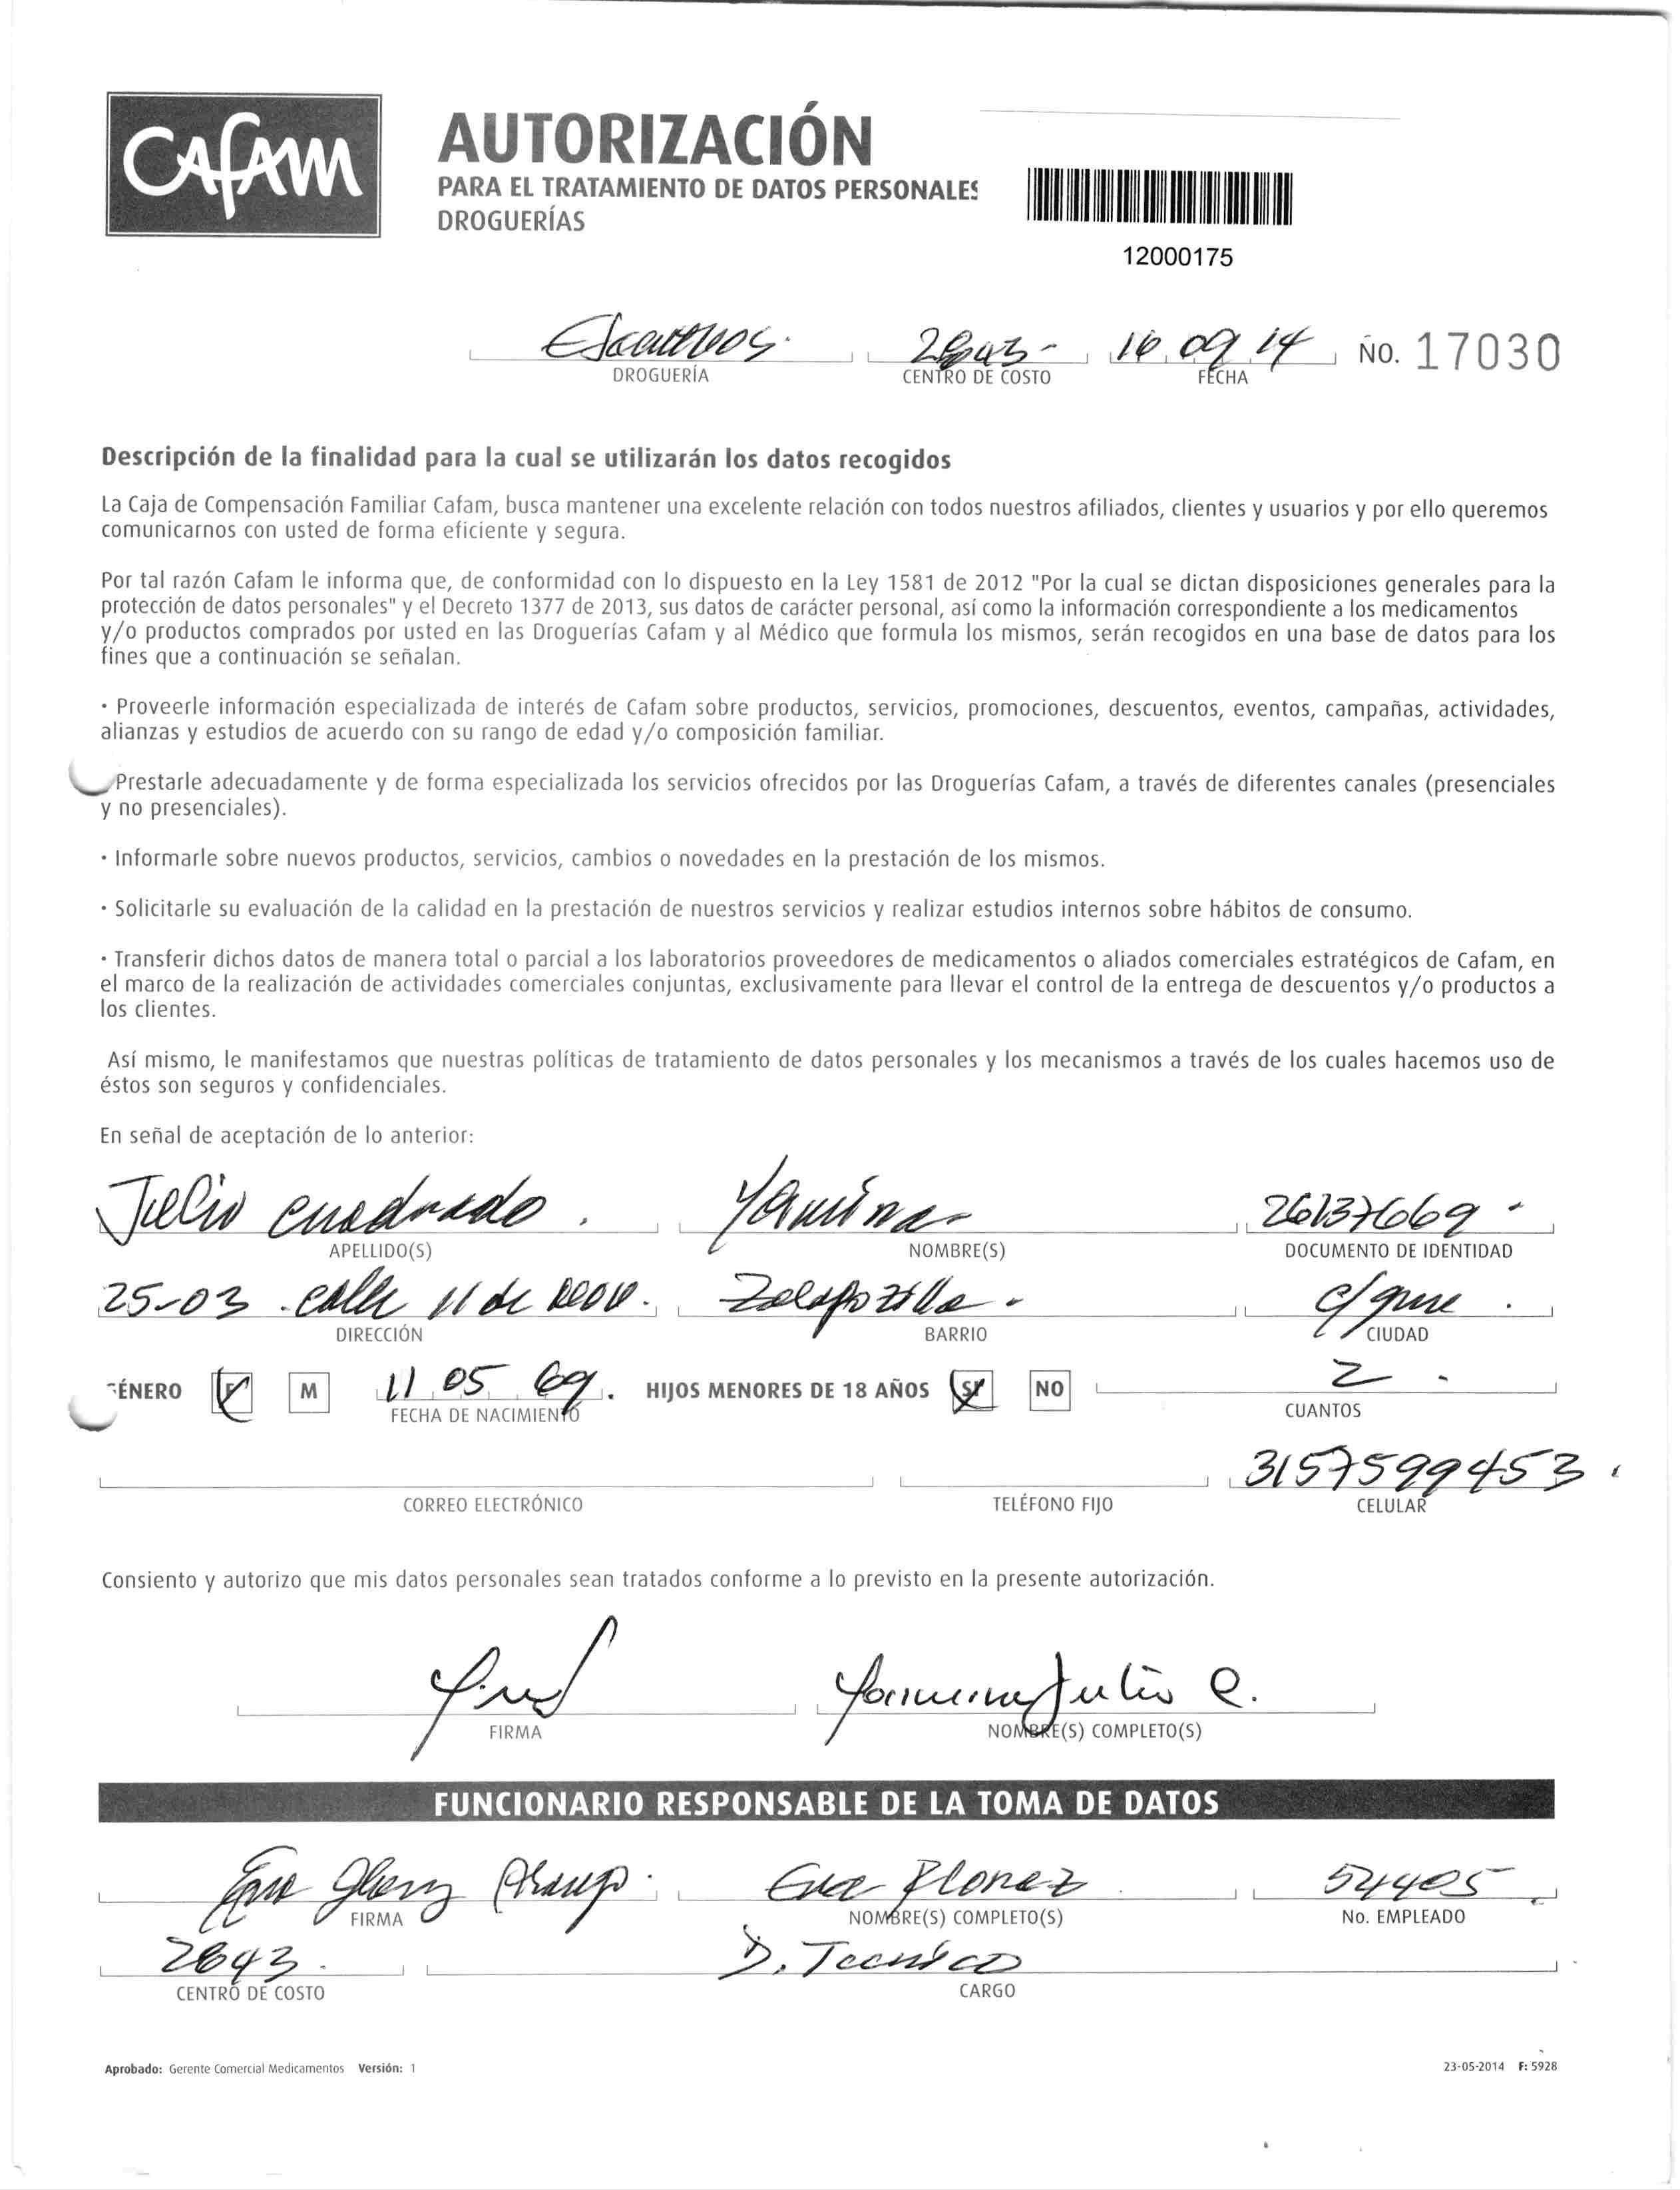 CAFAM
AUTORIZACIÓN
PARA EL TRATAMIENTO DE DATOS PERSONALES
DROGUERÍAS
12000175
16 09 14 No. 17030
DROGUERÍA CENTRO DE COSTO FECHA
Descripción de la finalidad para la cual se utilizarán los datos recogidos
La Caja de Compensación Familiar Cafam, busca mantener una excelente relación con todos nuestros afiliados, clientes y usuarios y por ello queremos
comunicarnos con usted de forma eficiente y segura.
Por tal razón Cafam le informa que, de conformidad con lo dispuesto en la Ley 1581 de 2012 "Por la cual se dictan disposiciones generales para la
protección de datos personales" y el Decreto 1377 de 2013, sus datos de carácter personal, así como la información correspondiente a los medicamentos
y/o productos comprados por usted en las Droguerías Cafam y al Médico que formula los mismos, serán recogidos en una base de datos para los
fines que a continuación se señalan.
· Proveerle información especializada de interés de Cafam sobre productos, servicios, promociones, descuentos, eventos, campañas, actividades,
alianzas y estudios de acuerdo con su rango de edad y/o composición familiar.
Prestarle adecuadamente y de forma especializada los servicios ofrecidos por las Droguerías Cafam, a través de diferentes canales (presenciales
y no presenciales).
· Informarle sobre nuevos productos, servicios, cambios o novedades en la prestación de los mismos.
· Solicitarle su evaluación de la calidad en la prestación de nuestros servicios y realizar estudios internos sobre hábitos de consumo.
· Transferir dichos datos de manera total o parcial a los laboratorios proveedores de medicamentos o aliados comerciales estratégicos de Cafam, en
el marco de la realización de actividades comerciales conjuntas, exclusivamente para llevar el control de la entrega de descuentos y/o productos a
los clientes.
Así mismo, le manifestamos que nuestras políticas de tratamiento de datos personales y los mecanismos a través de los cuales hacemos uso de
éstos son seguros y confidenciales.
En señal de aceptación de lo anterior:
Julio cuadrado. Yamina 26137669
APELLIDO(S) NOMBRE(S) DOCUMENTO DE IDENTIDAD
25-03 calle 11 de
DIRECCIÓN BARRIO CIUDAD
GÉNERO F M 11 05 69. HIJOS MENORES DE 18 AÑOS SI NO 2
FECHA DE NACIMIENTO CUANTOS
3157599453
CORREO ELECTRÓNICO TELÉFONO FIJO CELULAR
Consiento y autorizo que mis datos personales sean tratados conforme a lo previsto en la presente autorización.
Yamina Julio C.
FIRMA NOMBRE(S) COMPLETO(S)
FUNCIONARIO RESPONSABLE DE LA TOMA DE DATOS
54405
FIRMA NOMBRE(S) COMPLETO(S) No. EMPLEADO
2843 D. Tecnico
CENTRO DE COSTO CARGO
Aprobado: Gerente Comercial Medicamentos Versión: 1 23-05-2014 F: 5928